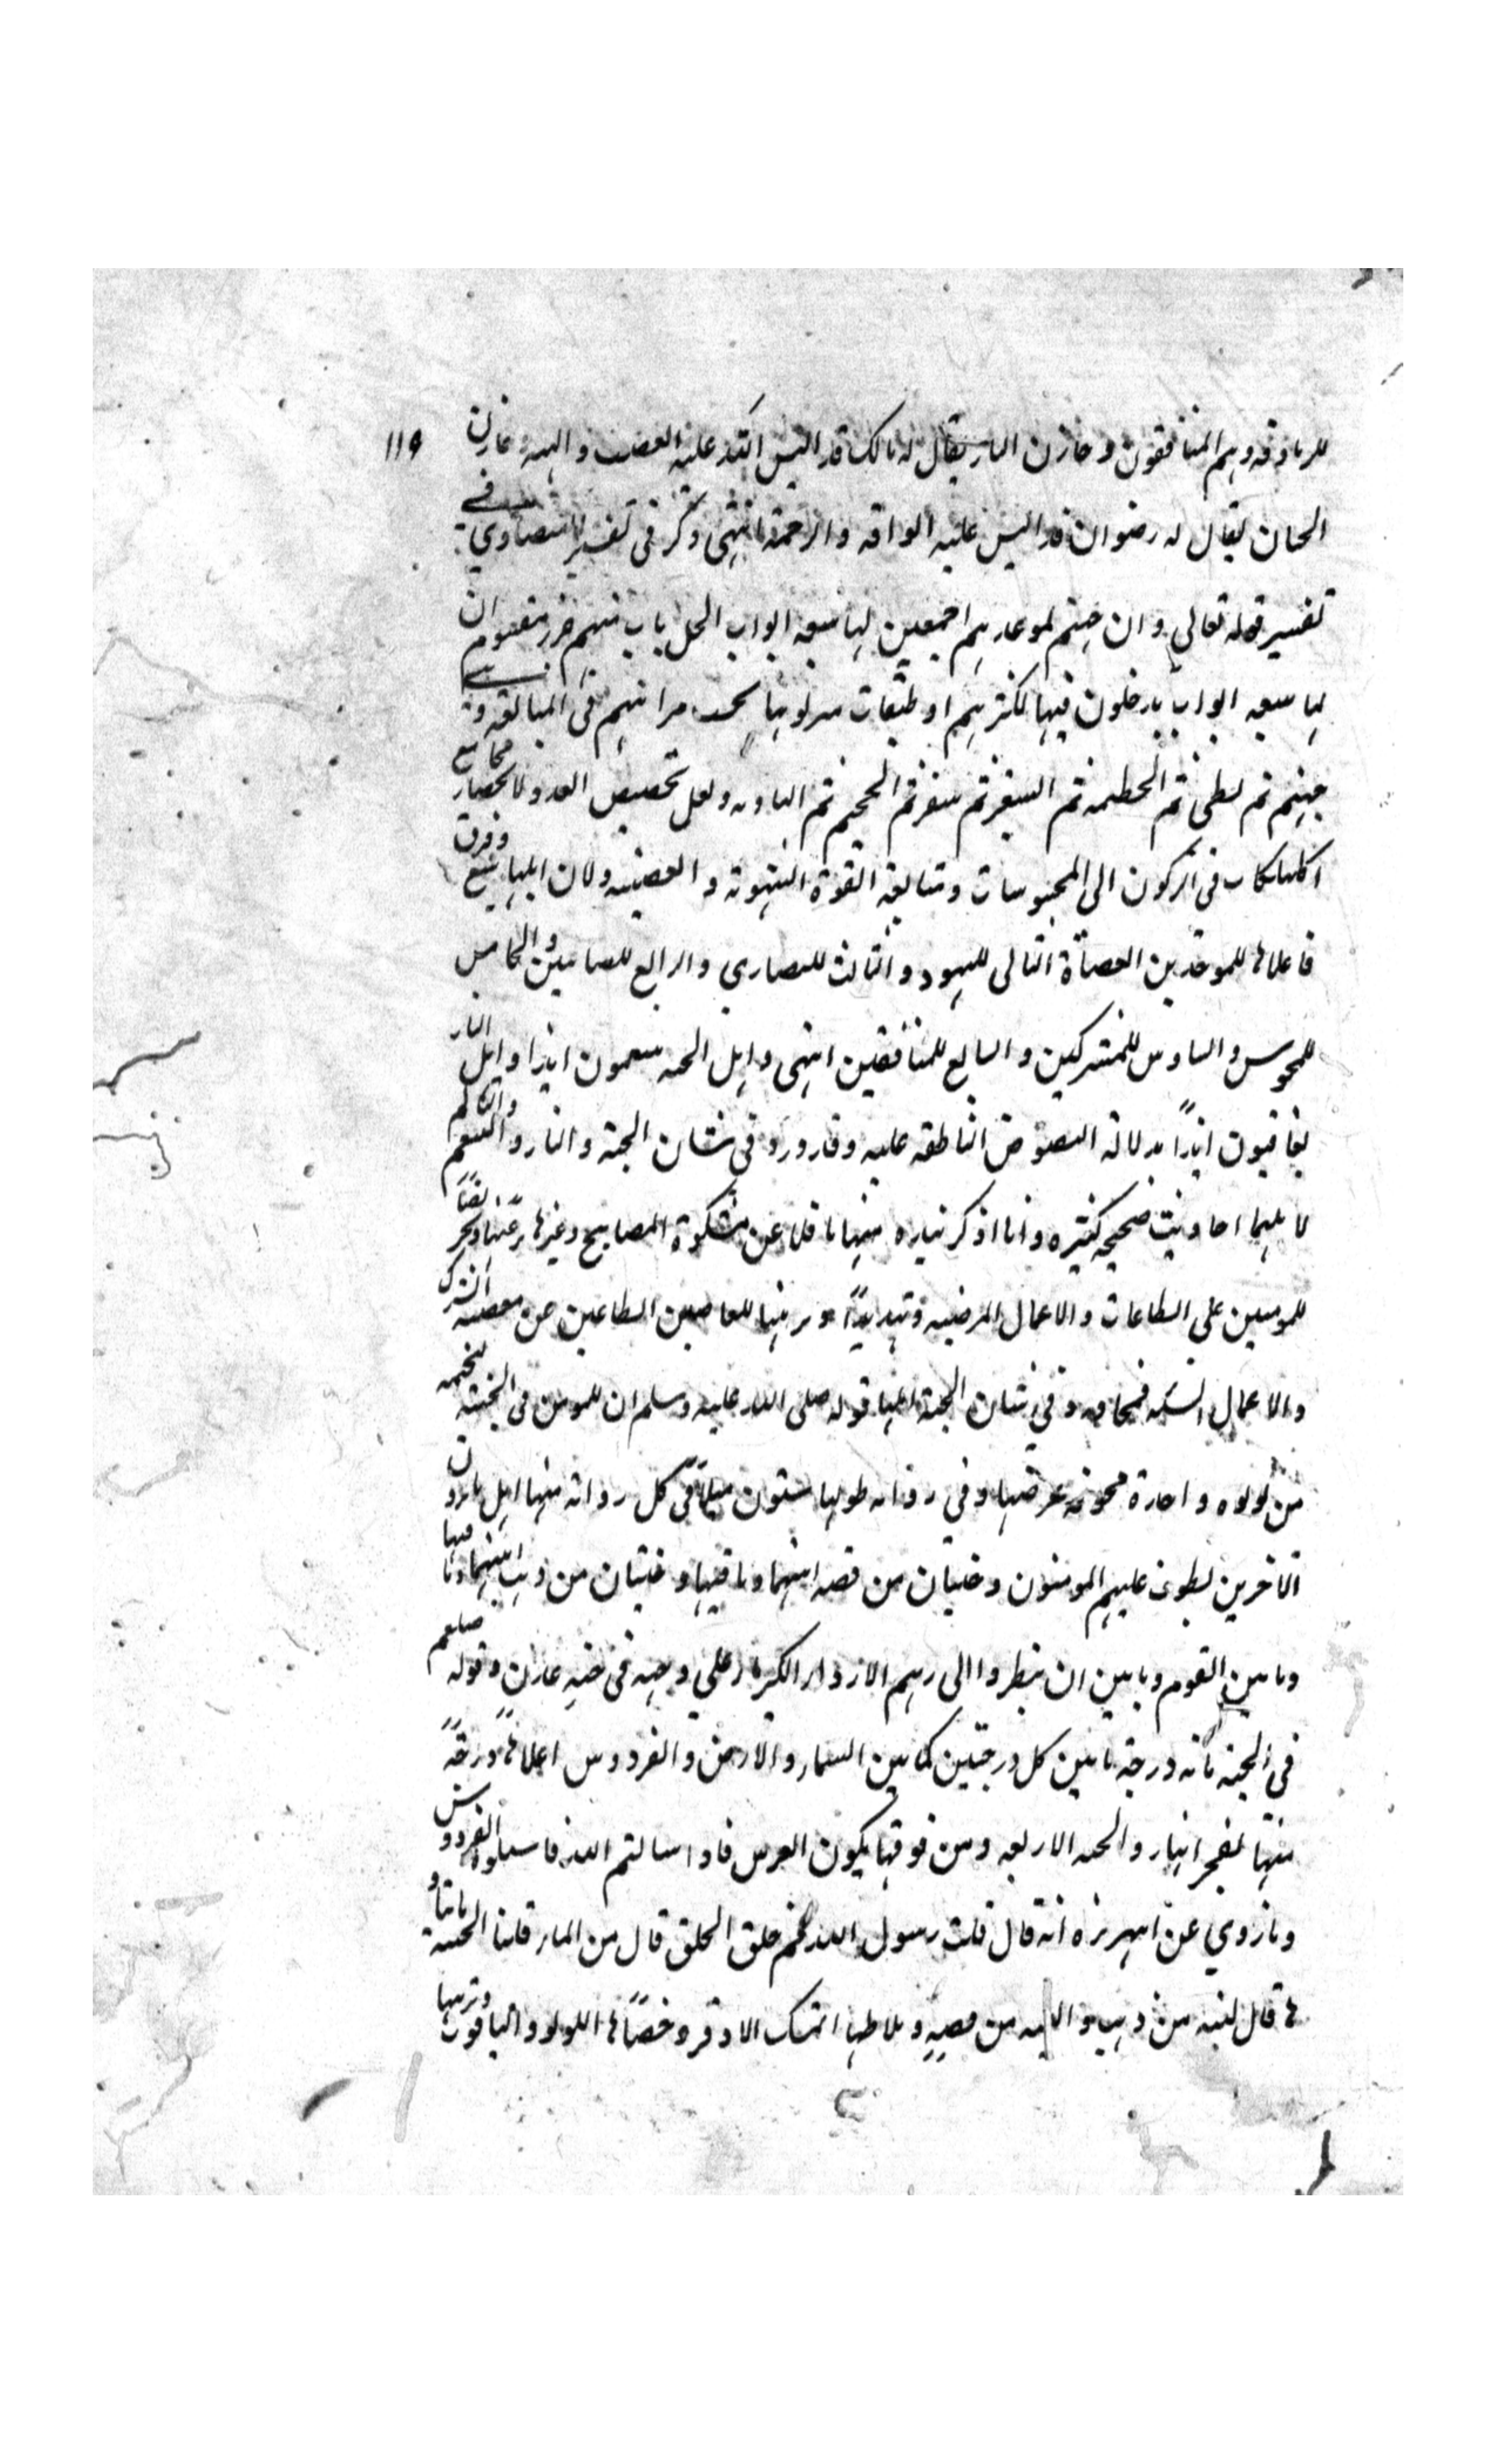 ١١٩
للزنادقة وهم المنافقون وخازن النار يقال له مالك قد البس الله عليه الغضب والهيبة وخازن
الجنان يقال له رضوان قد البس عليه الرافة والرحمة انتهى وذكر في تفسير البيضاوي في
تفسير قوله تعالى وان جهنم لموعدهم اجمعين لها سبعة ابواب لكل باب منهم جزء مقسوم ان
لها سبعة ابواب يدخلون فيها لكثرتهم او طبقات ينزلونها بحسب مراتبهم في المتابعة وهي
جهنم ثم لظى ثم الحطمة ثم السعير ثم سقر ثم الجحيم ثم الهاوية ولعل تخصيص العدد لانحصار مجامع
المهلكات في الركون الى المحسوسات ومتابعة القوة الشهوية والغضبية ولان اهلها سبع فرق
فاعلاها للموحدين العصاة الثاني لليهود والثالث للنصارى والرابع للصابئين والخامس
للمجوس والسادس للمشركين والسابع للمنافقين انتهى واهل الجنة ينعمون ابدا واهل النار
يعاقبون ابداً بدلالة النصوص الناطقة عليه وقد ورد في شان الجنة والنار والنعيم والتالم
لاهلها احاديث صحيحة كثيرة وانا اذكر نبذه منها ناقلا عن مشكوة المصابيح وغيرها ترغيبا
للمومنين على الطاعات والاعمال المرضيه وتهديداً للعاصين الطاغين عن معصية الشرك
والاعمال السيئة في شان الجنة قوله صلى الله عليه وسلم ان للمومن في الجنة لخيمة
من لولوه واحدة مجوفة عرضها وفي رواية طولها ستون ميلاً في كل زواية منها اهل ما يرون
الاخرين يطوف عليهم المومنون وجنتان من فضه انيتهما وما فيها وجنتان من ذهب انيتهما وما فيها
وما بين القوم وما بين ان ينظروا الى ربهم الا رداء الكبرياء على وجهه في جنة عدن وقوله صلعم
في الجنة مائة درجة ما بين كل درجتين كما بين السماء والارض والفردوس اعلاها درجةً
منها تفجر انهار الجنة الاربعة ومن فوقها يكون العرش فاذا سالتم الله فاسئلوه الفردوس
وما روي عن ابي هريرة انه قال قلت رسول الله مم خلق الخلق قال من الماء قلنا الجنة ما بناؤ
ها قال لبنة من ذهب ولبنة من فضة وملاطها المسك الاذفر وحصباها اللولو والياقوت وتربتها